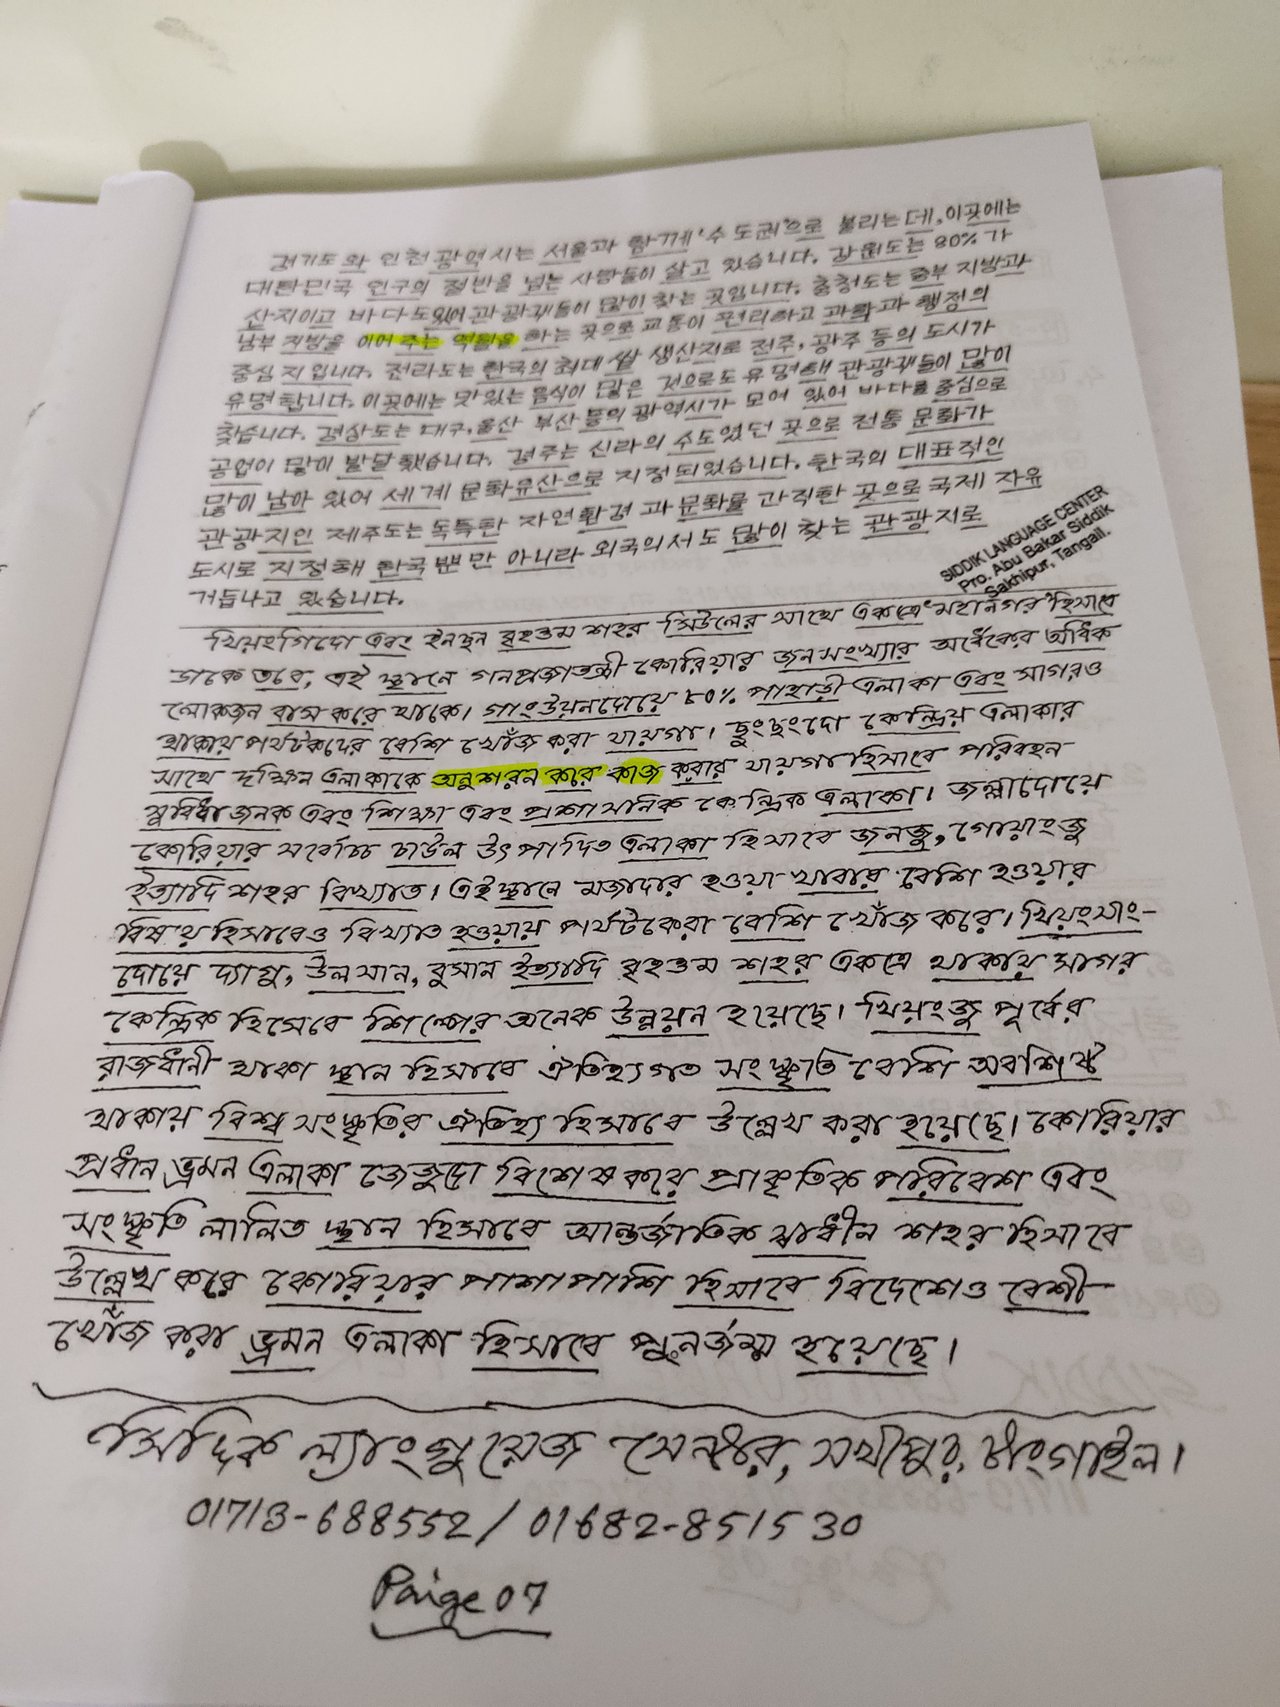 경기도와 인천 광역시는 서울과 함께 '수도권'으로 불리는데, 이곳에는
대한민국 인구의 절반을 넘는 사람들이 살고 있습니다. 강원도는 80%가
산지이고 바다도 있어 관광객들이 많이 찾는 곳입니다. 충청도는 중부 지방과
남부 지방을 이어 주는 역할을 하는 곳으로 교통이 편리하고 과학과 행정의
중심지입니다. 전라도는 한국의 최대 쌀 생산지로 전주, 광주 등의 도시가
유명합니다. 이곳에는 맛있는 음식이 많은 것으로도 유명해 관광객들이 많이
찾습니다. 경상도는 대구, 울산 부산 등의 광역시가 모여 있어 바다를 중심으로
공업이 많이 발달했습니다. 경주는 신라의 수도였던 곳으로 전통 문화가
많이 남아 있어 세계 문화유산으로 지정되었습니다. 한국의 대표적인
관광지인 제주도는 독특한 자연환경과 문화를 간직한 곳으로 국제 자유
도시로 지정해 한국뿐만 아니라 외국의서도 많이 찾는 관광지로
거듭나고 있습니다.
SIDDIK LANGUAGE CENTER
Pro. Abu Bakar Siddik
Sakhipur, Tangail.
খিয়ংগিদো এবং ইনছন বৃহত্তম শহর সিউলের সাথে একত্রে "মহানগর" হিসাবে
ডাকে তবে, এই স্থানে গনপ্রজাতন্ত্রী কোরিয়ার জনসংখ্যার অর্ধেকের অধিক
লোকজন বাস করে থাকে। গাংউয়নদোয়ে ৮০% পাহাড়ী এলাকা এবং সাগরও
থাকায় পর্যটকদের বেশি খোঁজ করা যায়গা। ছুংছংদো কেন্দ্রিয় এলাকার
সাথে দক্ষিন এলাকাকে অনুশরন করে কাজ করার যায়গা হিসাবে পরিবহন
সুবিধাজনক এবং শিক্ষা এবং প্রশাসনিক কেন্দ্রিক এলাকা। জল্লাদোয়ে
কোরিয়ার সর্বোচ্চ চাউল উৎপাদিত এলাকা হিসাবে জনজু, গোয়াংজু
ইত্যাদি শহর বিখ্যাত। এইস্থানে মজাদার হওয়া খাবার বেশি হওয়ার
বিষয় হিসাবেও বিখ্যাত হওয়ায় পর্যটকেরা বেশি খোঁজ করে। খিয়ংসাং-
দোয়ে দ্যাগু, উলসান, বুসান ইত্যাদি বৃহত্তম শহর একত্রে থাকায় সাগর
কেন্দ্রিক হিসেবে শিল্পের অনেক উন্নয়ন হয়েছে। খিয়ংজু পূর্বের
রাজধানী থাকা স্থান হিসাবে ঐতিহ্যগত সংস্কৃতি বেশি অবশিষ্ট
থাকায় বিশ্ব সংস্কৃতির ঐতিহ্য হিসাবে উল্লেখ করা হয়েছে। কোরিয়ার
প্রধান ভ্রমন এলাকা জেজুদো বিশেষ করে প্রাকৃতিক পরিবেশ এবং
সংস্কৃতি লালিত স্থান হিসাবে আন্তর্জাতিক স্বাধীন শহর হিসাবে
উল্লেখ করে কোরিয়ার পাশাপাশি হিসাবে বিদেশেও বেশী
খোঁজ করা ভ্রমন এলাকা হিসাবে পুনর্জন্ম হয়েছে।
সিদ্দিক ল্যাংগুয়েজ সেন্টার, সখীপুর, টাংগাইল।
01713-688552 / 01682-851530
Paige 07